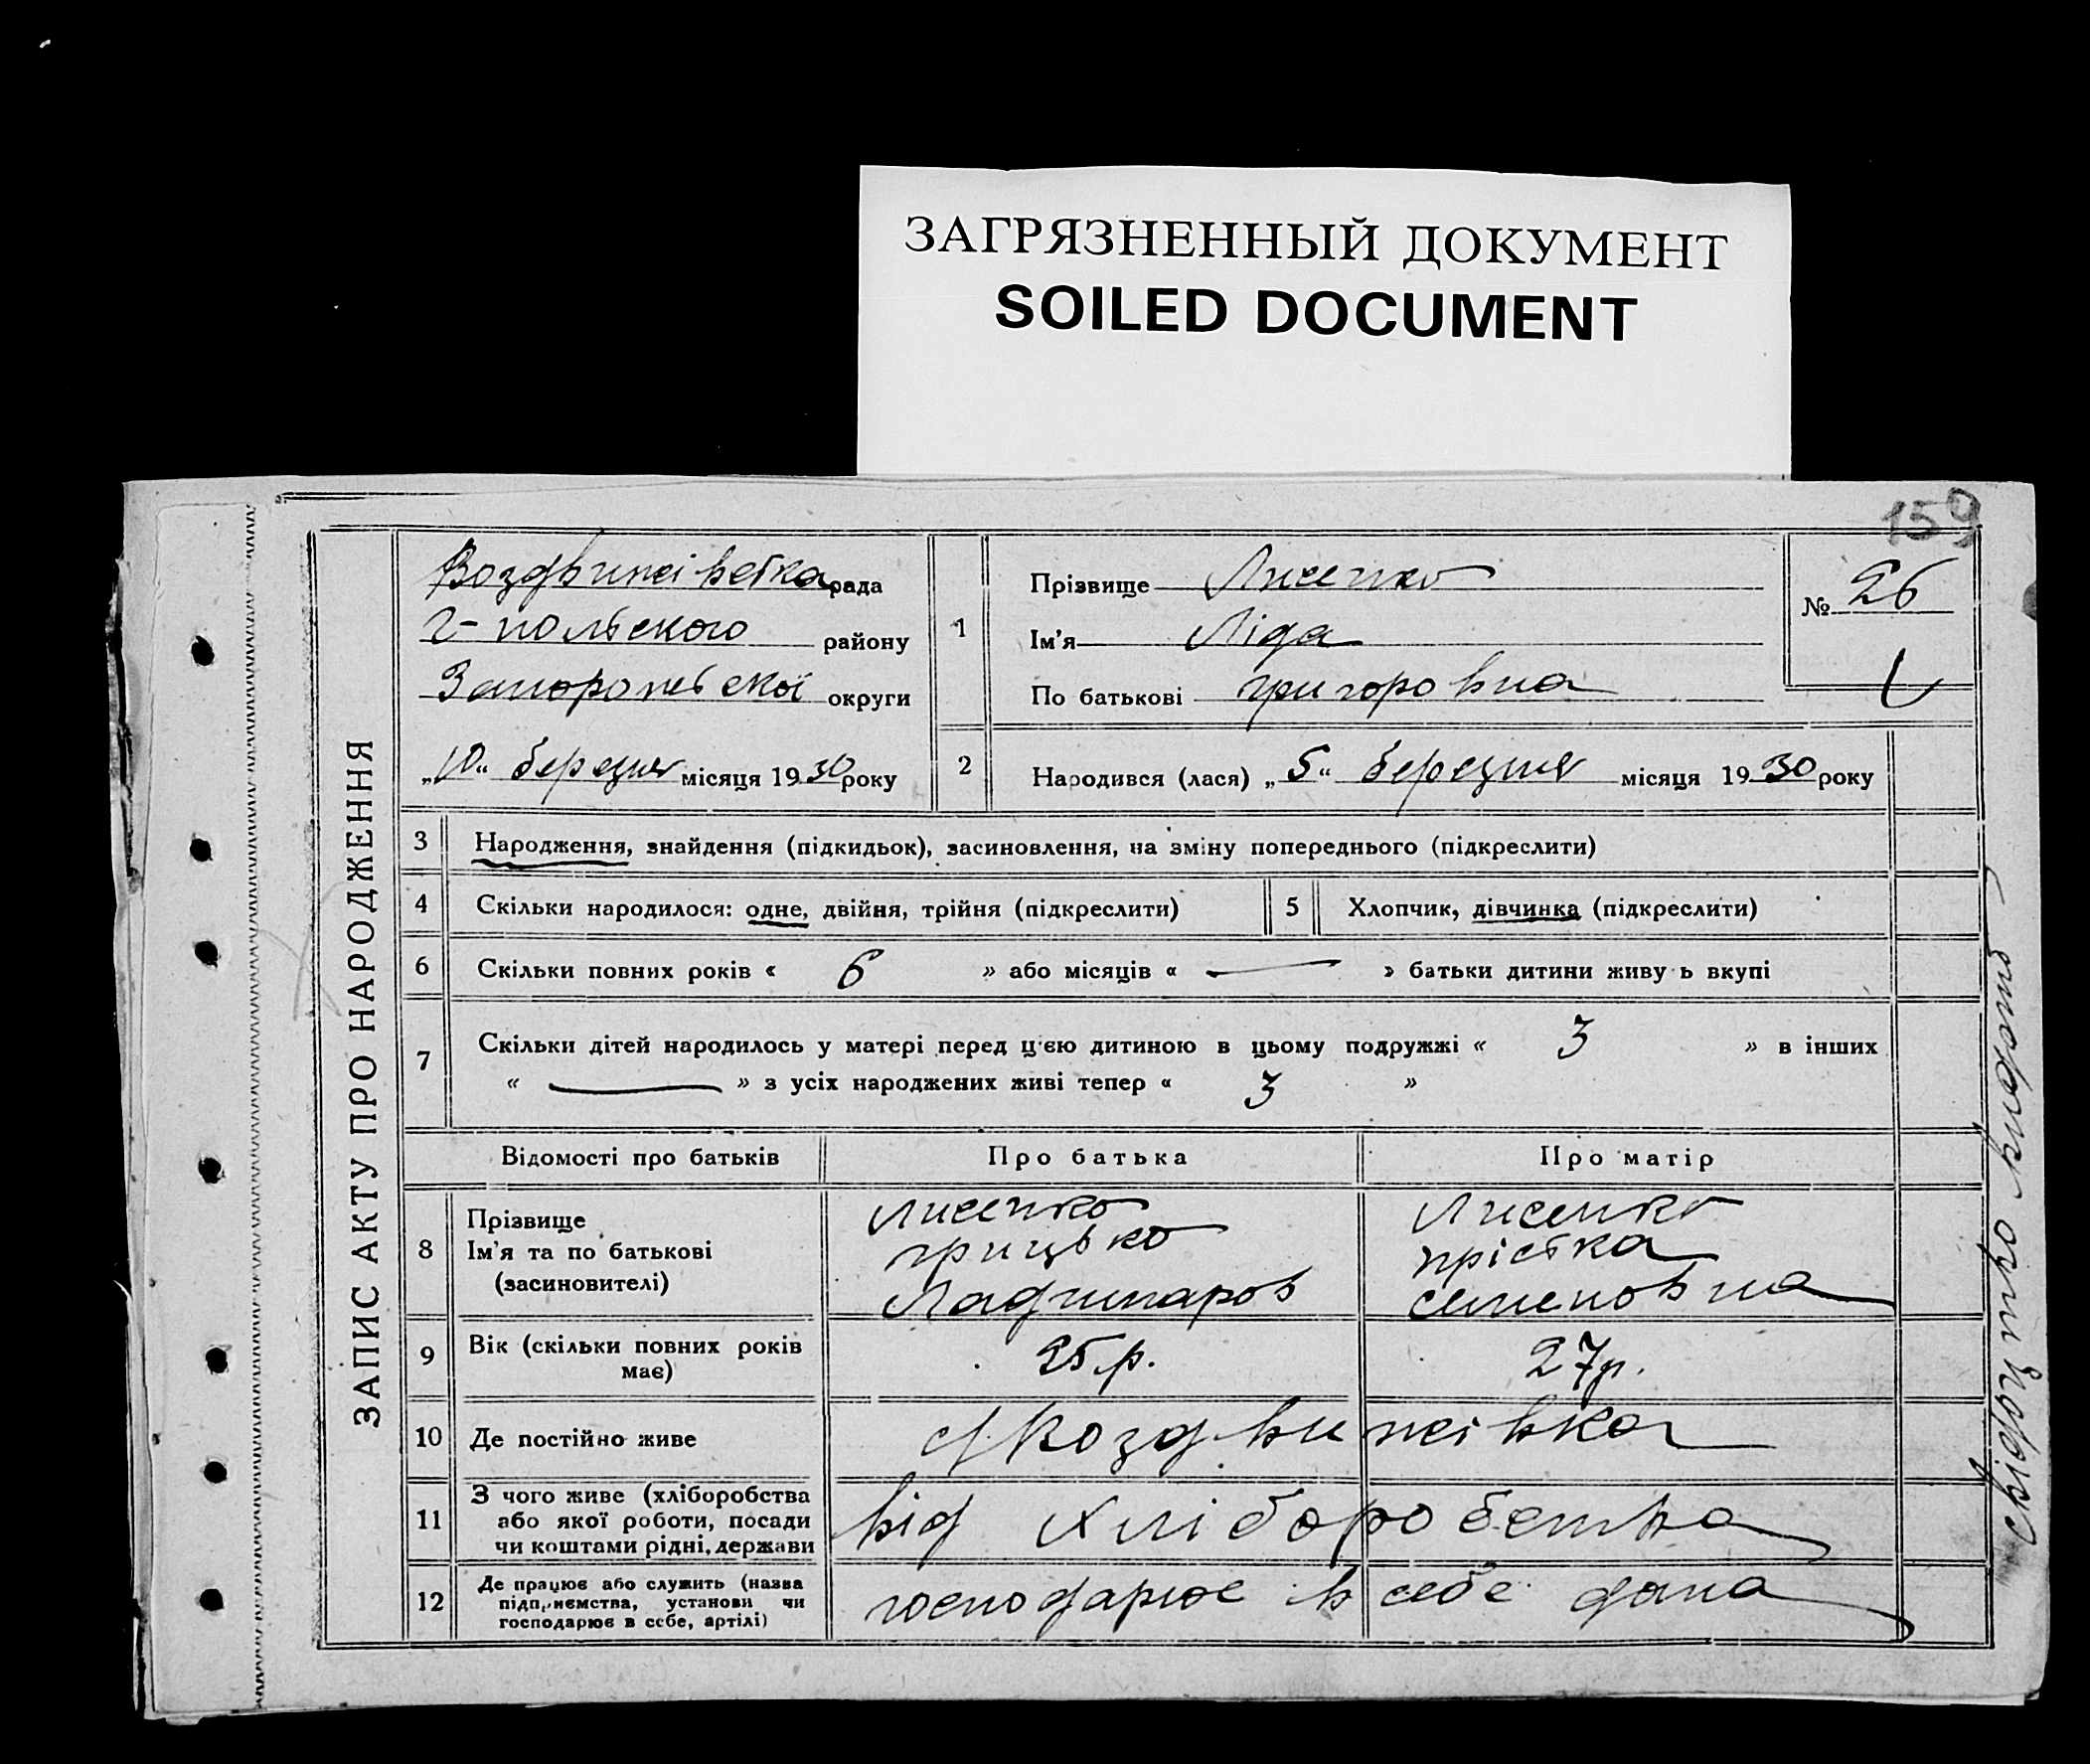 ЗАГРЯЗНЕННЫЙ ДОКУМЕНТ
SOILED DOCUMENT
159
ЗАПИС АКТУ ПРО НАРОДЖЕННЯ
Воздвижівська рада
Г-польского району
Запорожської округи
„10“ березня місяця 1930 року
1
Прізвище Лисенко
Ім'я Ліда
По батькові Григоровна
№ 26
2
Народився (лася) „5“ березня місяця 1930 року
3 Народження, знайдення (підкидьок), засиновлення, на зміну попереднього (підкреслити)
4 Скільки народилося: одне, двійня, трійня (підкреслити)
5 Хлопчик, дівчинка (підкреслити)
6 Скільки повних років « 6 » або місяців « — » батьки дитини живу ь вкупі
7 Скільки дітей народилось у матері перед ц'єю дитиною в цьому подружжі « 3 » в інших
« — » з усіх народжених живі тепер « 3 »
Відомості про батьків
Про батька
Про матір
8
Прізвище
Ім'я та по батькові
(засиновителі)
Лисенко
Грицько
Лисенко
Прiська
Семеновна
9
Вік (скільки повних років
має)
25 р.
27 р.
10 Де постійно живе
с. Воздвижівка
11
З чого живе (хліборобства
або якої роботи, посади
чи коштами рідні, держави
від хліборобства
12
Де працює або служить (назва
підприємства, установи чи
господарює в себе, артілі)
господарює в себе дома
свідоцтво видано